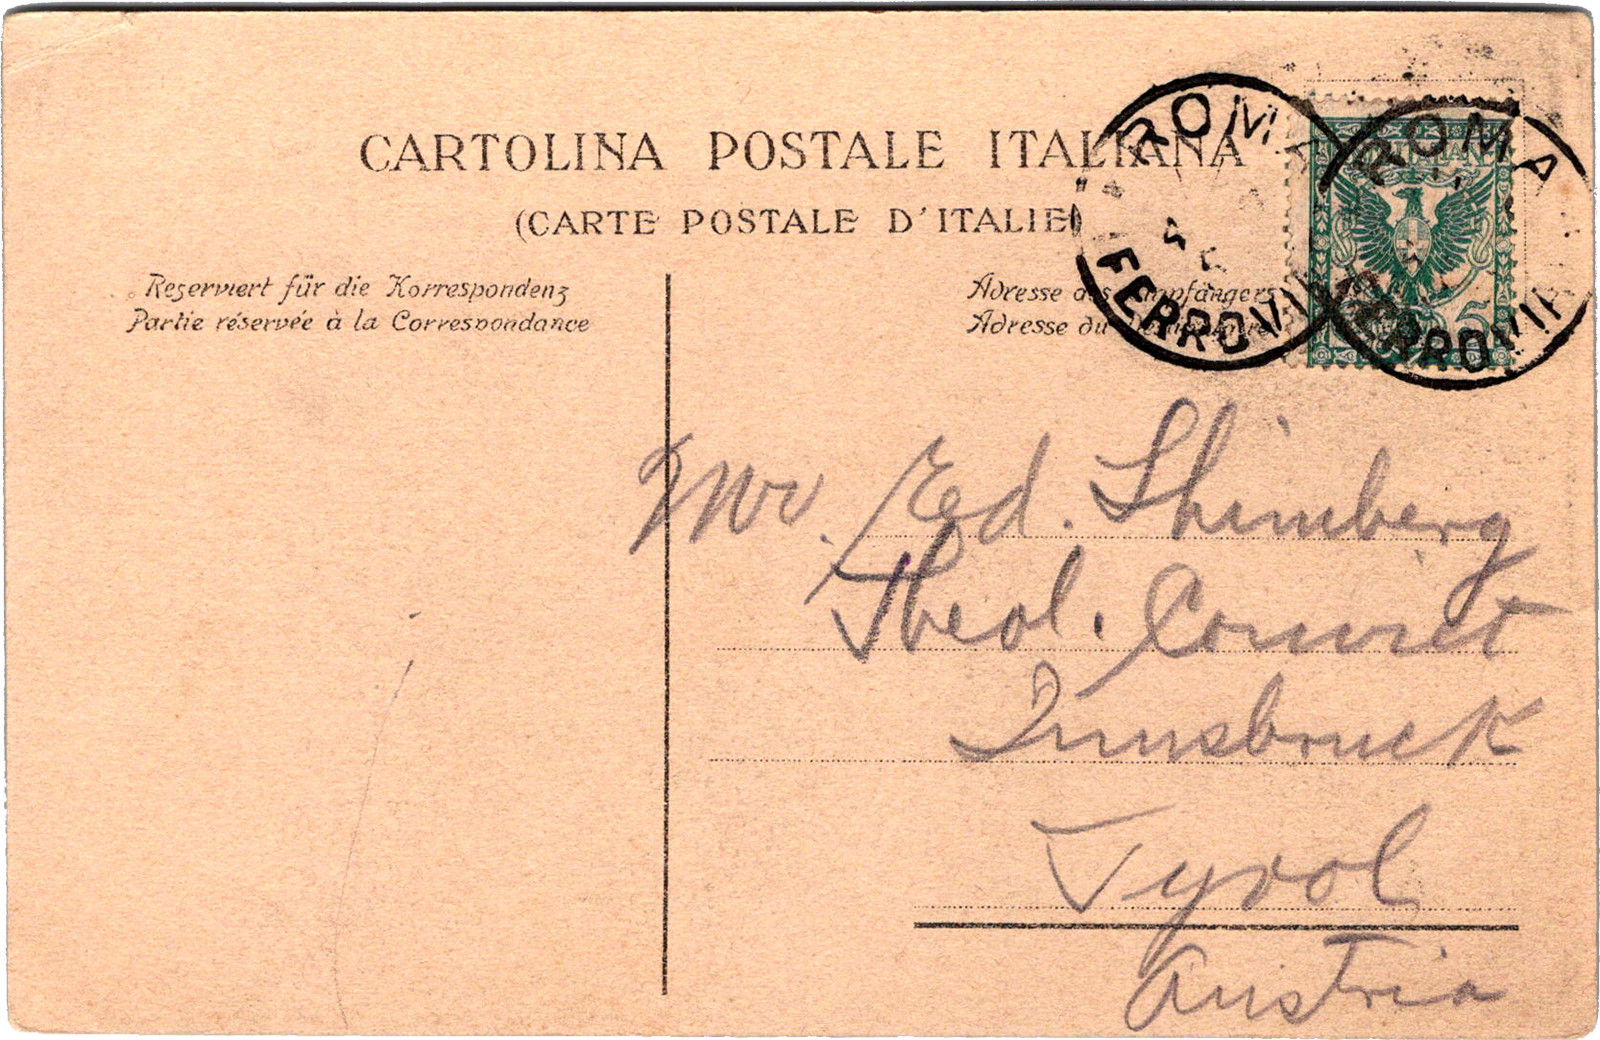 CARTOLINA POSTALE ITALIANA
(CARTE POSTALE D'ITALIE)
Reserviert für die Korrespondenz
Partie réservée à la Correspondance
Adresse des Empfängers
Adresse du
ROMA
FERROVIA
ROMA
FERROVIA
5
Mr. Ed. Shimberg
Theol. Convict
Innsbruck
Tyrol
Austria